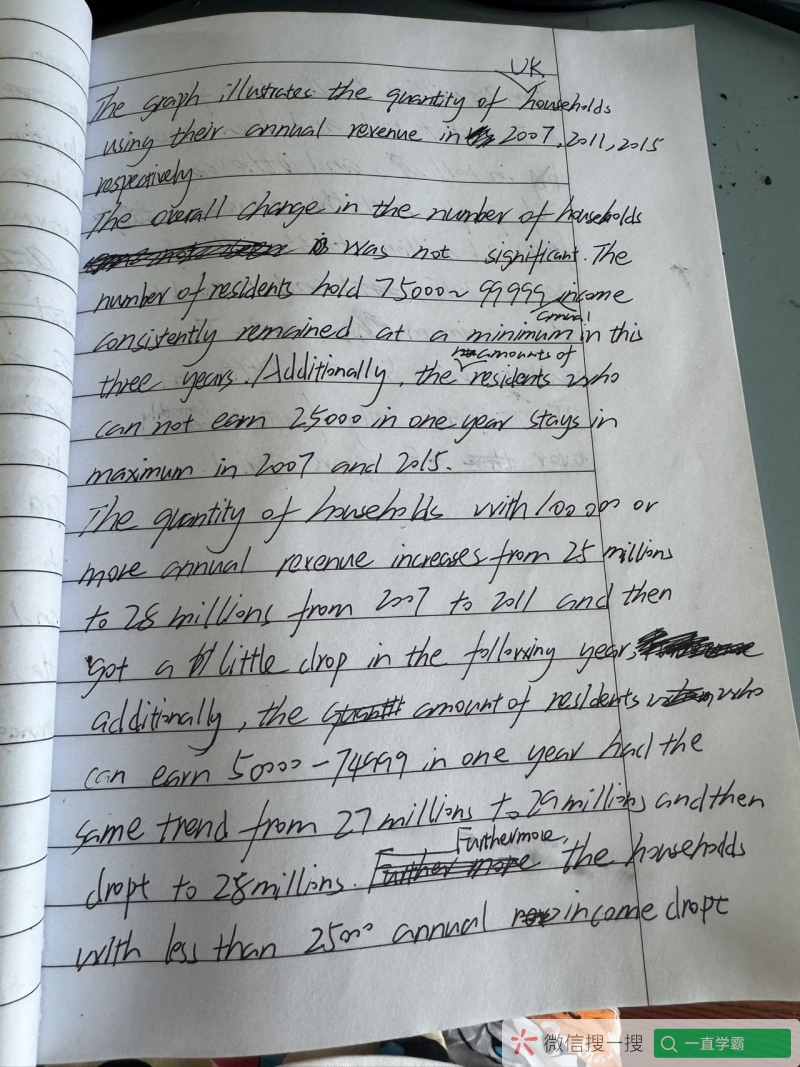 The graph illustrates the quantity of UK households
using their annual revenue in 2007, 2011, 2015
respectively.
The overall change in the number of households
was not significant. The
number of residents hold 75000~99999 annual income
consistently remained at a minimum in this
three years. Additionally, the amounts of residents who
can not earn 25000 in one year stays in
maximum in 2007 and 2015.
The quantity of households with 100000 or
more annual revenue increases from 25 millions
to 28 millions from 2007 to 2011 and then
got a little drop in the following year,
additionally, the amount of residents who
can earn 50000-74999 in one year had the
same trend from 27 millions to 29 millions and then
dropt to 28 millions. Furthermore, the households
with less than 25000 annual income dropt
微信搜一搜 一直学霸